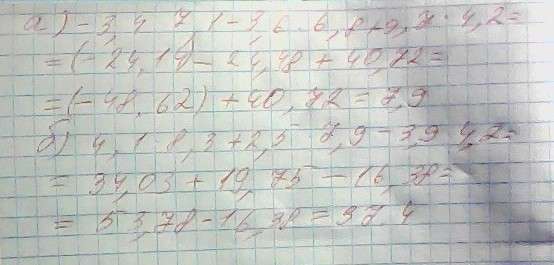 а) -3,4 · 7,1 - 3,6 · 6,8 + 9,7 · 4,2 =
= (-24,14) - 24,48 + 40,72 =
= (-48,62) + 40,72 = 7,9
б) 4,1 · 8,3 + 2,5 · 7,9 - 3,9 · 4,2 =
= 34,03 + 19,75 - 16,38 =
= 53,78 - 16,38 = 37,4